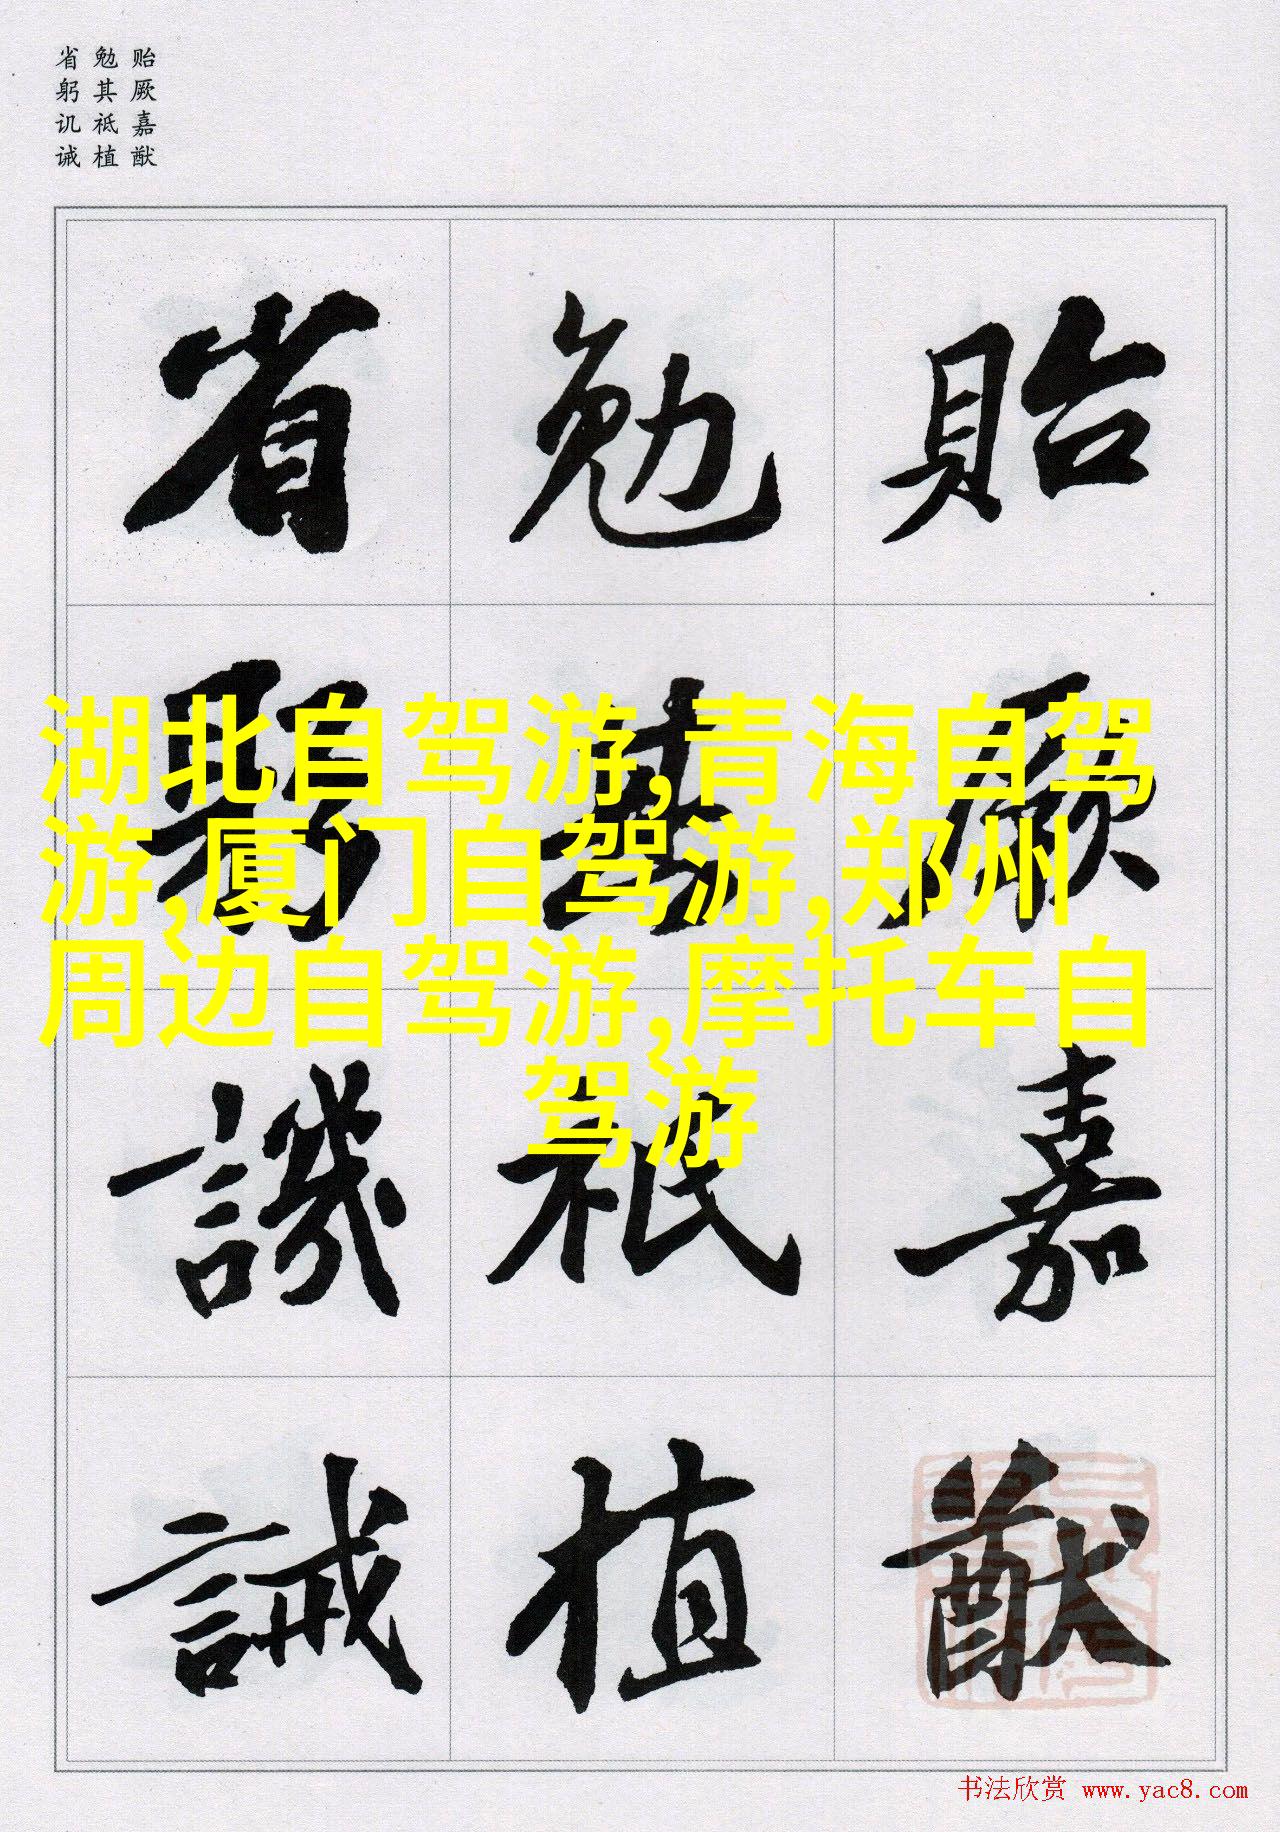 贻厥嘉猷
勉其祗植
省躬讥诫
貽厥嘉猷
勉其祗植
省躬譏誡
湖北自驾游,青海自驾
游,厦门自驾游,郑州
周边自驾游,摩托车自
驾游
书法欣赏 www.yac8.com